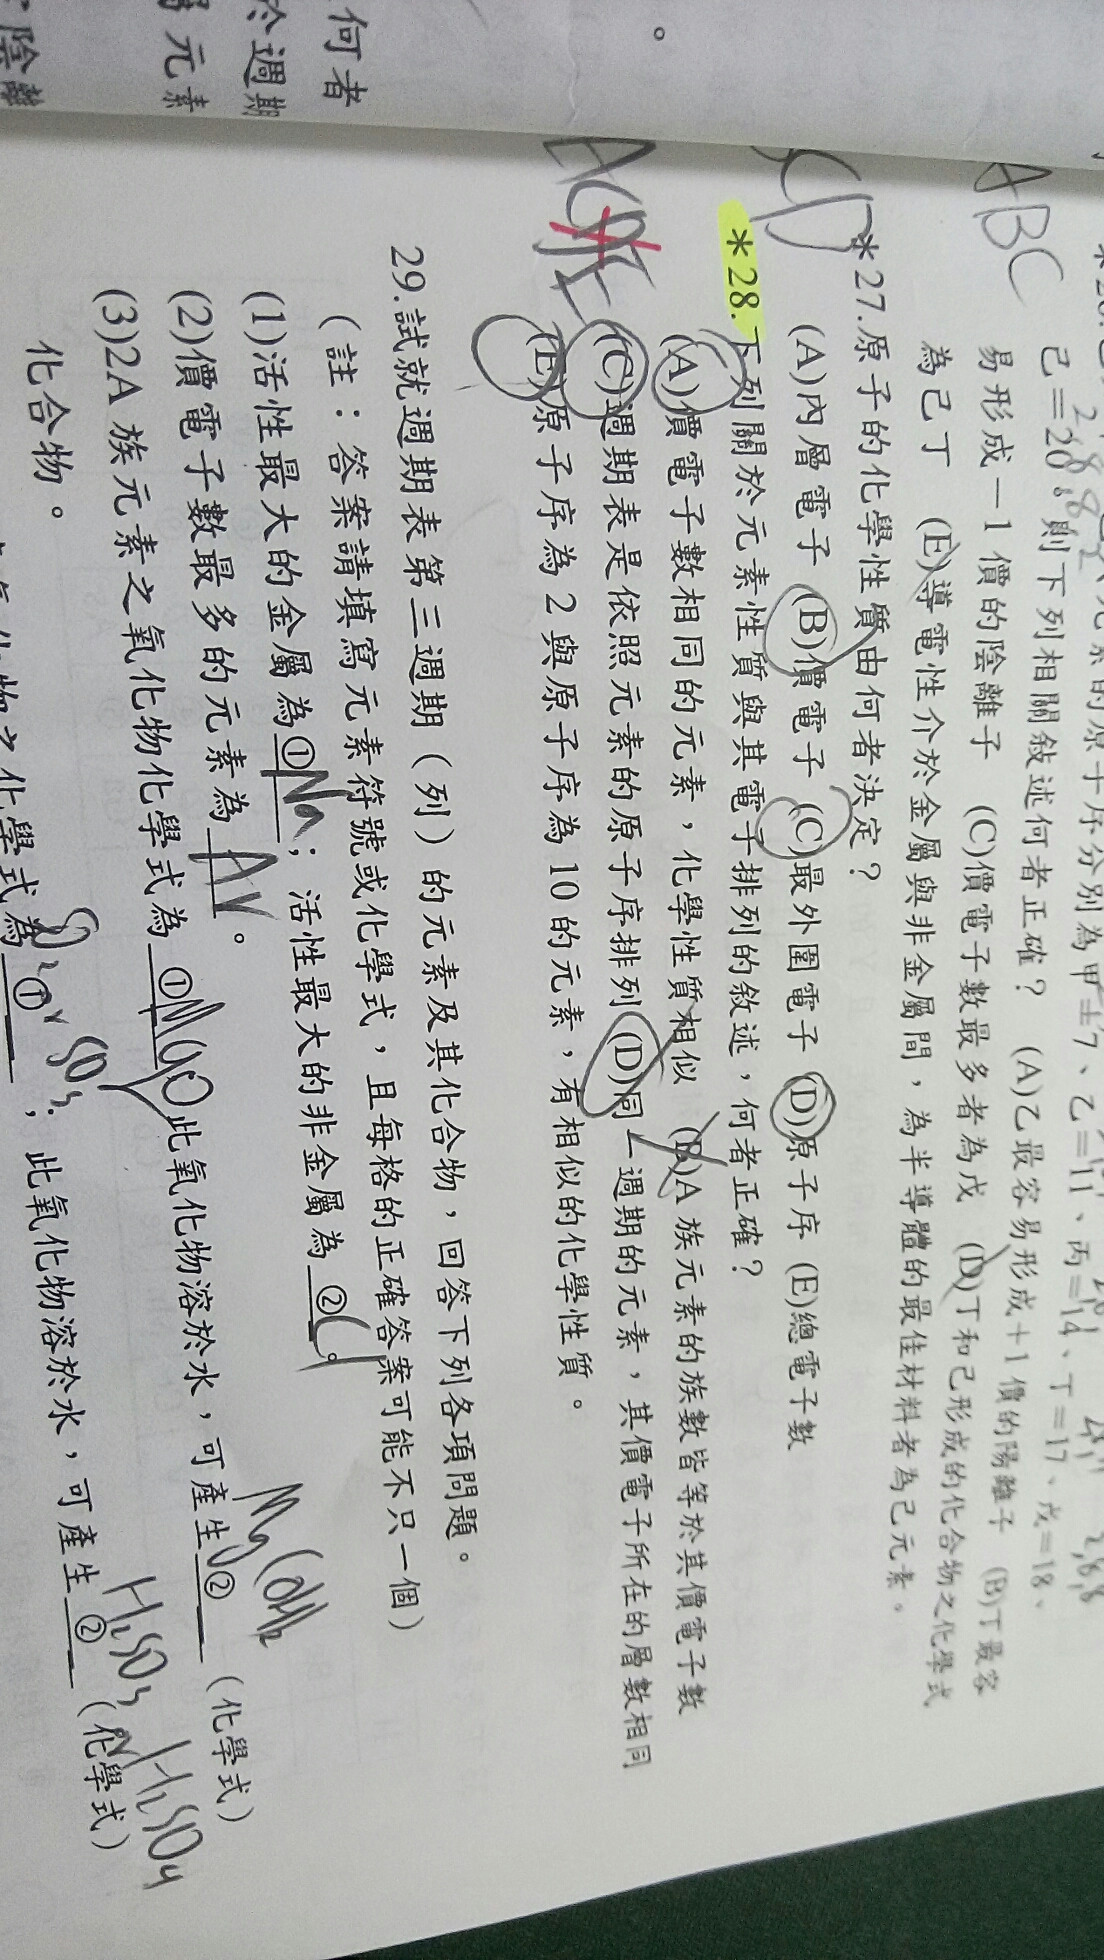 何者
於週期
元素
陰離
己=20 則下列相關敘述何者正確？ (A)乙最容易形成+1價的陽離子 (B)丁最容
ABC
易形成－1價的陰離子 (C)價電子數最多者為戊 (D)丁和己形成的化合物之化學式
為己丁 (E)導電性介於金屬與非金屬間，為半導體的最佳材料者為己元素。
*27.原子的化學性質由何者決定？
(A)內層電子 (B)價電子 (C)最外圍電子 (D)原子序 (E)總電子數
*28.下列關於元素性質與其電子排列的敘述，何者正確？
(A)價電子數相同的元素，化學性質相似 (B)A 族元素的族數皆等於其價電子數
(C)週期表是依照元素的原子序排列 (D)同一週期的元素，其價電子所在的層數相同
(E)原子序為 2 與原子序為 10 的元素，有相似的化學性質。
29.試就週期表第三週期（列）的元素及其化合物，回答下列各項問題。
（註：答案請填寫元素符號或化學式，且每格的正確答案可能不只一個）
(1)活性最大的金屬為 ①Na；活性最大的非金屬為 ②Cl。
(2)價電子數最多的元素為 Ar。
(3)2A 族元素之氧化物化學式為 ①MgO 此氧化物溶於水，可產生 ② Mg(OH)₂ （化學式）
化合物。
化學式為 ① SO₂ or SO₃；此氧化物溶於水，可產生 ② H₂SO₃ or H₂SO₄ （化學式）